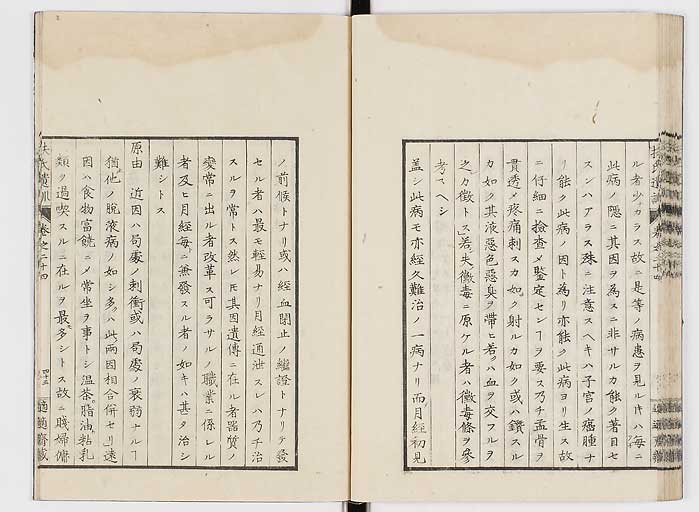 ル者少カラス故ニ是等ノ病患ヲ見ル𪜈ハ毎ニ
此病ノ隠ニ其因ヲ為スニ非サルカ能ク著目セ
スンハアラス殊ニ注意スヘキハ子宮ノ癌腫ナ
リ能ク此病ノ因ト為リ亦能ク此病ヨリ生ス故
ニ仔細ニ撿査メ鑒定センヿヲ要ス乃チ盂骨ヲ
貫透メ疼痛刺スカ如ク射ルカ如ク或ハ鑽スル
カ如ク其液悪色悪臭ヲ帯ヒ若クハ血ヲ交フルヲ
之カ徴トス若失黴毒ニ原ケル者ハ黴毒條ヲ參
考スヘシ
盖シ此病モ亦經久難治ノ一病ナリ而月經初見
ノ前候トナリ或ハ經血閉止ノ繼證トナリテ發
セル者ハ最モ輕易ナリ月經通泄スレハ乃チ治
スルヲ常トス然レ𪜈其因遺傳ニ在ル者器質ノ
變常ニ出ル者改革ス可ラサルノ職業ニ係レル
者及ヒ月經毎ニ兼發スル者ノ如キハ甚タ治シ
難シトス
原由 近因ハ局處ノ刺衝或ハ局處ノ衰弱ナルヿ
猶他ノ脱液病ノ如シ多クハ此兩因相合併セリ遠
因ハ食物富饒ニメ常坐ヲ事トシ温茶脂油粘乳
類ク過喫スルニ在ルヲ最多シトス故ニ賤婦傭
扶氏遺訓 卷之二十四 四十三 適適齋藏